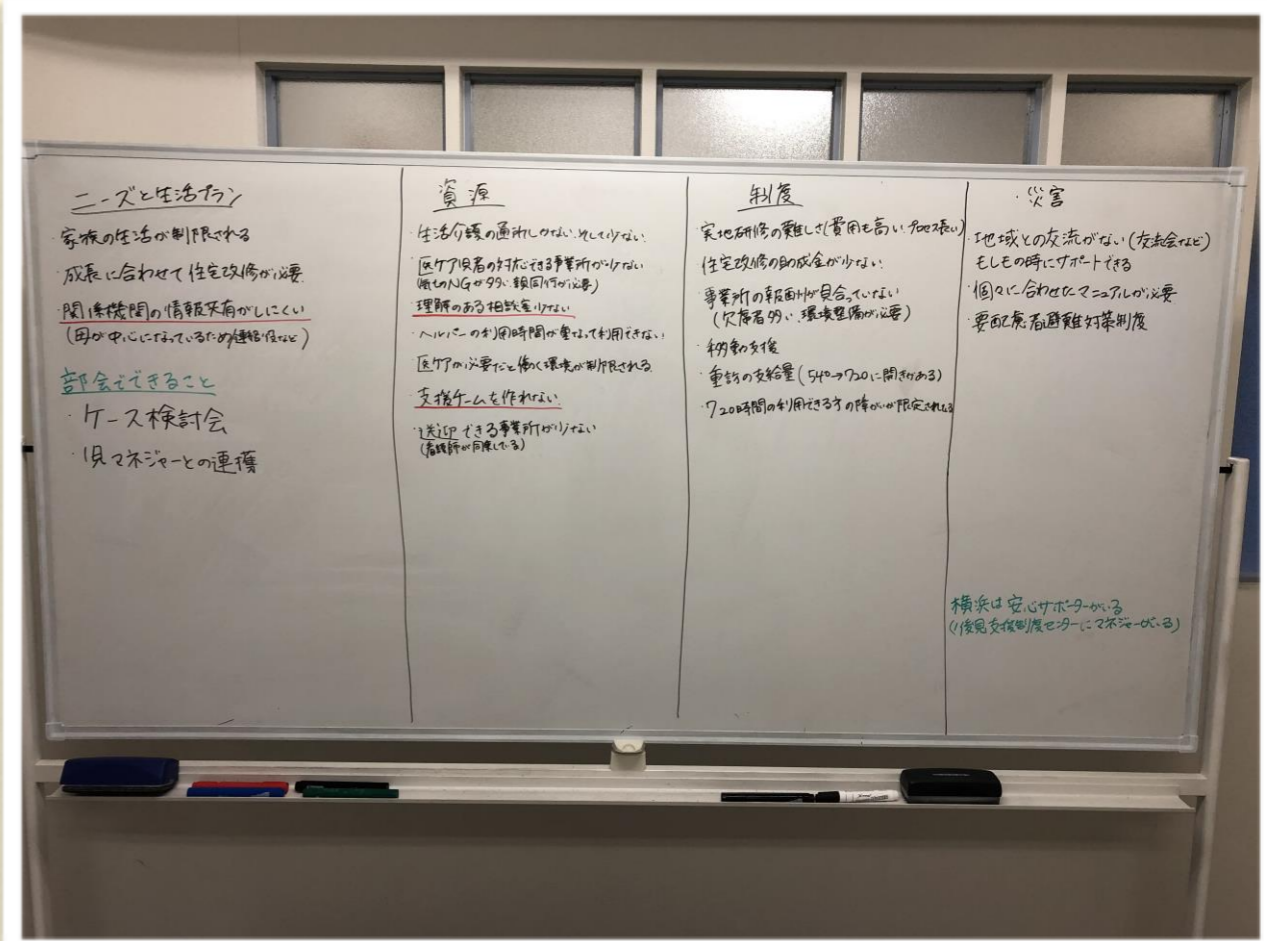 ニーズと生活プラン
・家族の生活が制限される
・成長に合わせて住宅改修が必要
・関係機関の情報共有がしにくい
(母が中心になっているため連絡役など)
部会でできること
・ケース検討会
・児マネジャーとの連携
資源
・生活介護の通所しかない、そして少ない
・医ケア児者の対応できる事業所が少ない
(NGが多い、親同行が必要)
・理解のある相談室少ない
・ヘルパーの利用時間が重なって利用できない
・医ケアが必要だと働く環境が制限される
・支援チームを作れない
・送迎できる事業所が少ない
(看護師が同乗している)
制度
・実地研修の難しさ(費用も高い、プロセス長い)
・住宅改修の助成金が少ない
・事業所の報酬が見合っていない
(欠席者多い、環境整備が必要)
・移動支援
・重訪の支給量(540→720に開きがある)
・720時間の利用できる方の障がいが限定される
・災害
・地域との交流がない(交流会など)
もしもの時にサポートできる
・個々に合わせたマニュアルが必要
・要配慮者避難対策制度
横浜は安心サポーターがいる
(後見支援制度センターにマネジャーがいる)